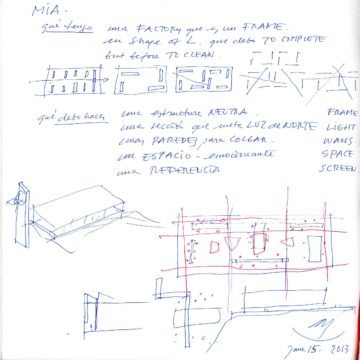 MIA.
qué tengo una FACTORY que es un FRAME.
en SHAPE OF L. que debo TO COMPLETE
but before TO CLEAN.
qué debo hacer una estructura NEUTRA. FRAME
una sección que mete LUZ de NORTE LIGHT
unas PAREDES para COLGAR. WALLS
un ESPACIO - emocionante SPACE
una REFERENCIA SCREEN
june 15. 2013